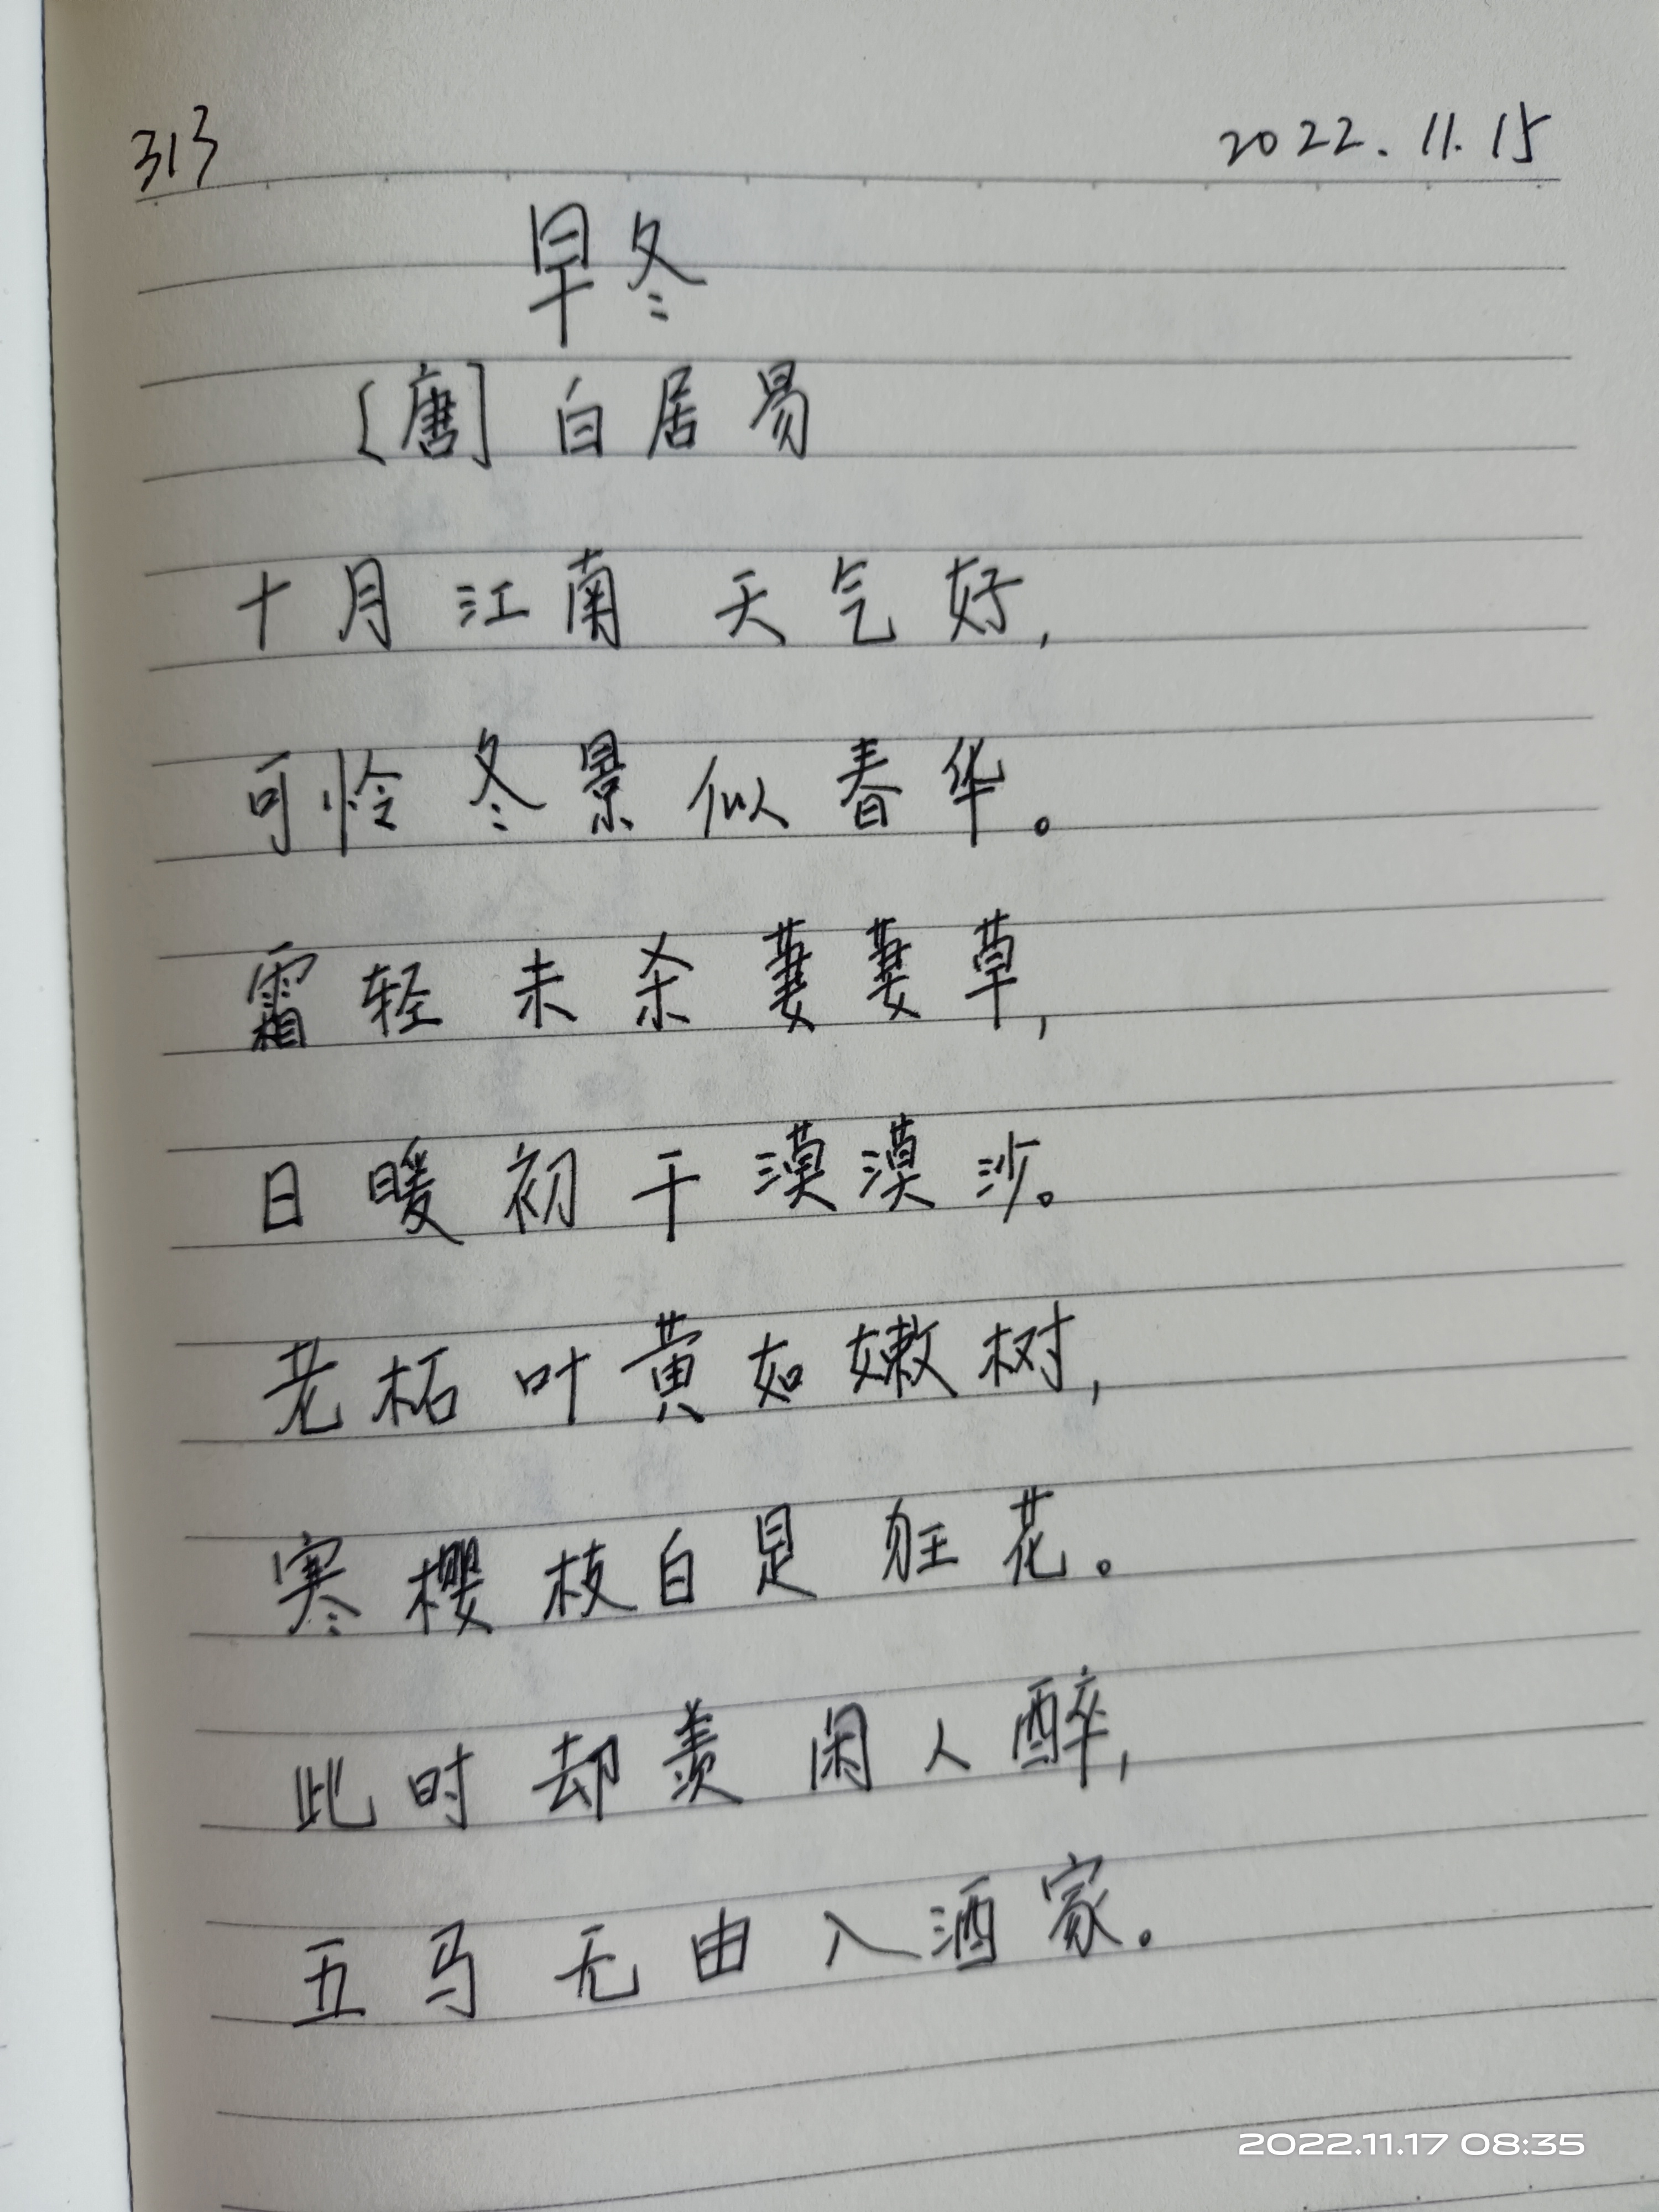 313
2022.11.15
早冬
[唐] 白居易
十月江南天气好,
可怜冬景似春华。
霜轻未杀萋萋草,
日暖初干漠漠沙。
老柘叶黄如嫩树,
寒樱枝白是狂花。
此时却羡闲人醉,
五马无由入酒家。
2022.11.17 08:35